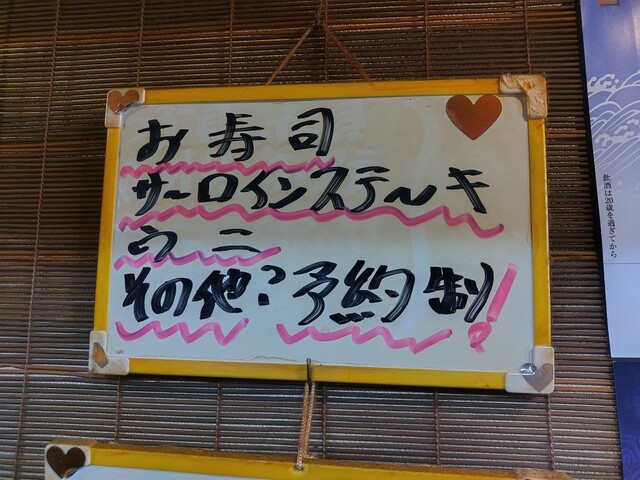 お寿司
サーロインステーキ
ウニ
その他?予約制!
飲酒は20歳を過ぎてから